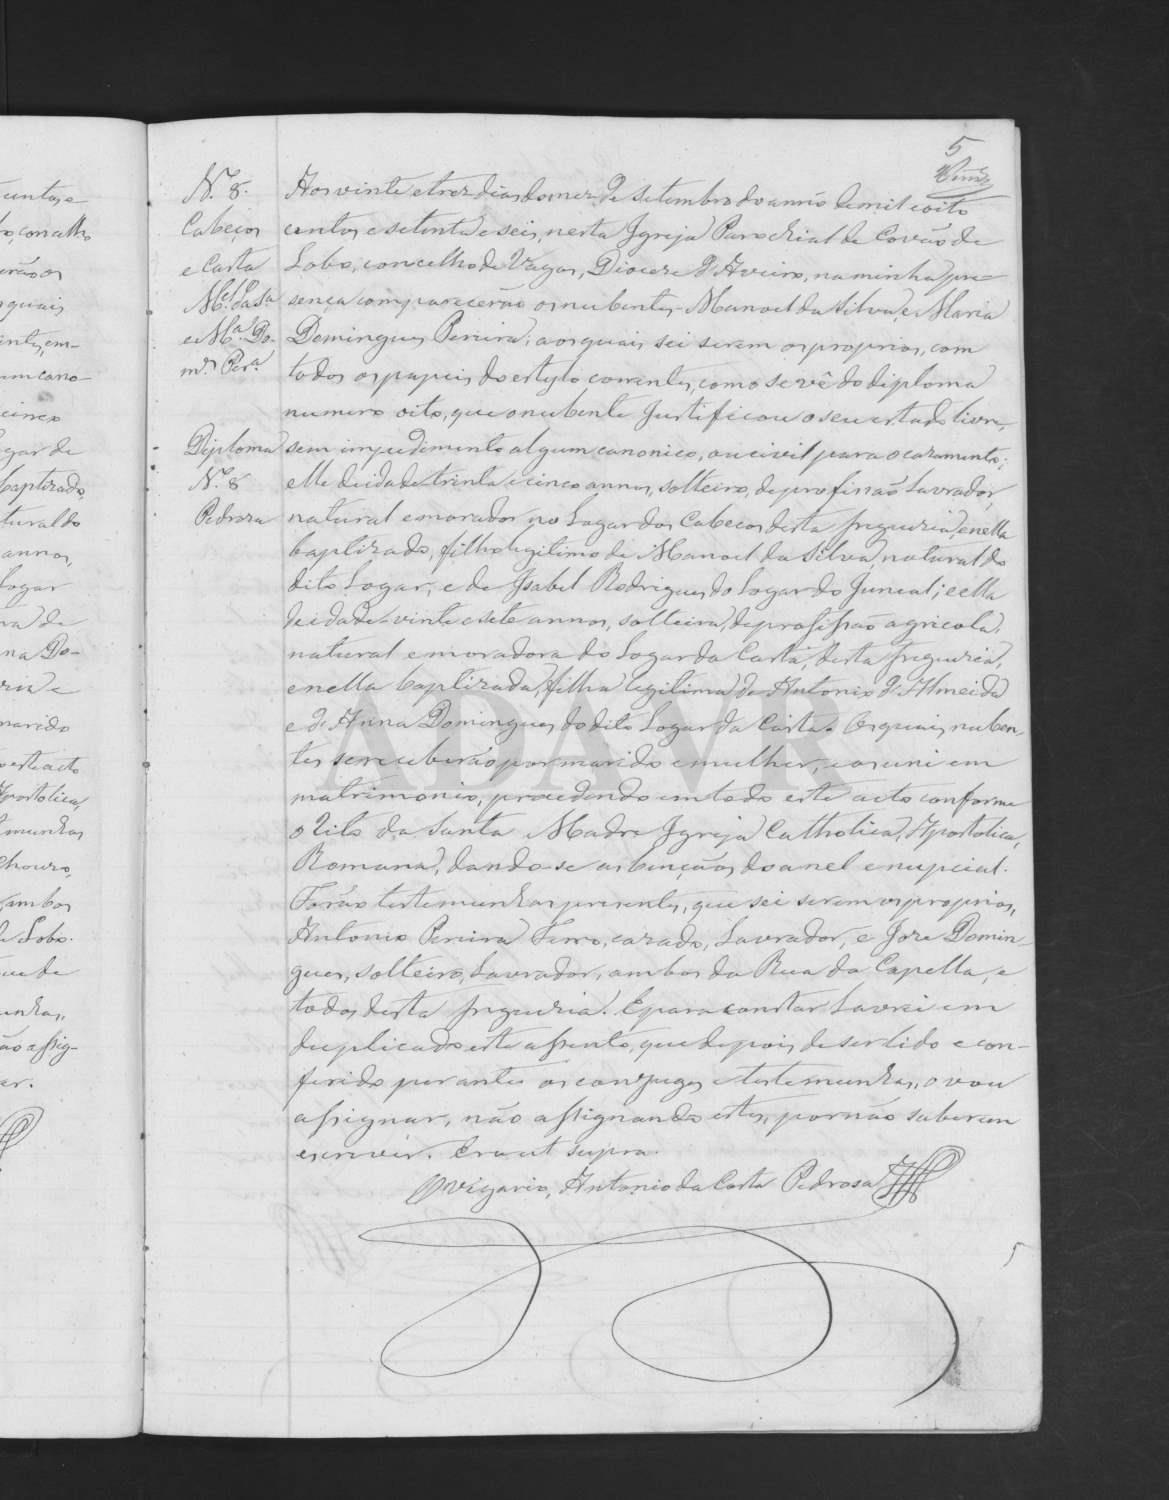 5
N.º 8.
Cabeços
e Carta
M.el da S.a
e M.a Do-
m.es Per.a
Diploma
N.º 8
Pedrosa
Aos vinte e trez dias do mez de Setembro do anno de mil e oito
centos e setenta e seis, nesta Igreja Parochial de Covão de
Lobo, concelho de Vagos, Diocese d'Aveiro, na minha pre-
sença comparecerão os nubentes Manoel da Silva, e Maria
Domingues Pereira, aos quais sei serem os proprios, com
todos os papeis do estylo correntes, como se vê do diploma
numero oito, que o nubente justificou o seu estado livre,
sem impedimento algum canonico, ou civil para o casamento;
elle de idade trinta e cinco annos, solteiro, de profissão Lavrador,
natural e morador no Logar dos Cabecos desta freguezia, e nella
baptizado, filho legitimo de Manoel da Silva, natural do
dito Logar, e de Isabel Rodrigues do Logar do Juncal; e ella
de idade vinte e sete annos, solteira, de profissão agricola,
natural e moradora do Logar da Carta, desta freguezia,
e nella baptizada, filha legitima de Antonio d'Almeida
e d'Anna Domingues do dito Logar da Carta. Os quais nuben-
tes se receberão por marido e mulher, e os uni em
matrimonio, procedendo em todo este acto conforme
o Rito da Santa Madre Igreja Catholica, Apostolica,
Romana, dando-se as bençãos do anel e nupcial.
Forão testemunhas presentes, que sei serem os proprios,
Antonio Pereira Ferro, cazado, Lavrador, e Joze Domin-
gues, solteiro, Lavrador, ambos da Rua da Capella, e
todos desta freguezia. E para constar Lavrei em
duplicado este assento, que depois de ser lido e con-
ferido perante os conjuges e testemunhas, o vou
assignar, não assignando estes, por não saberem
escrever. Era ut supra.
O Vigario, Antonio da Costa Pedrosa
ADAVR